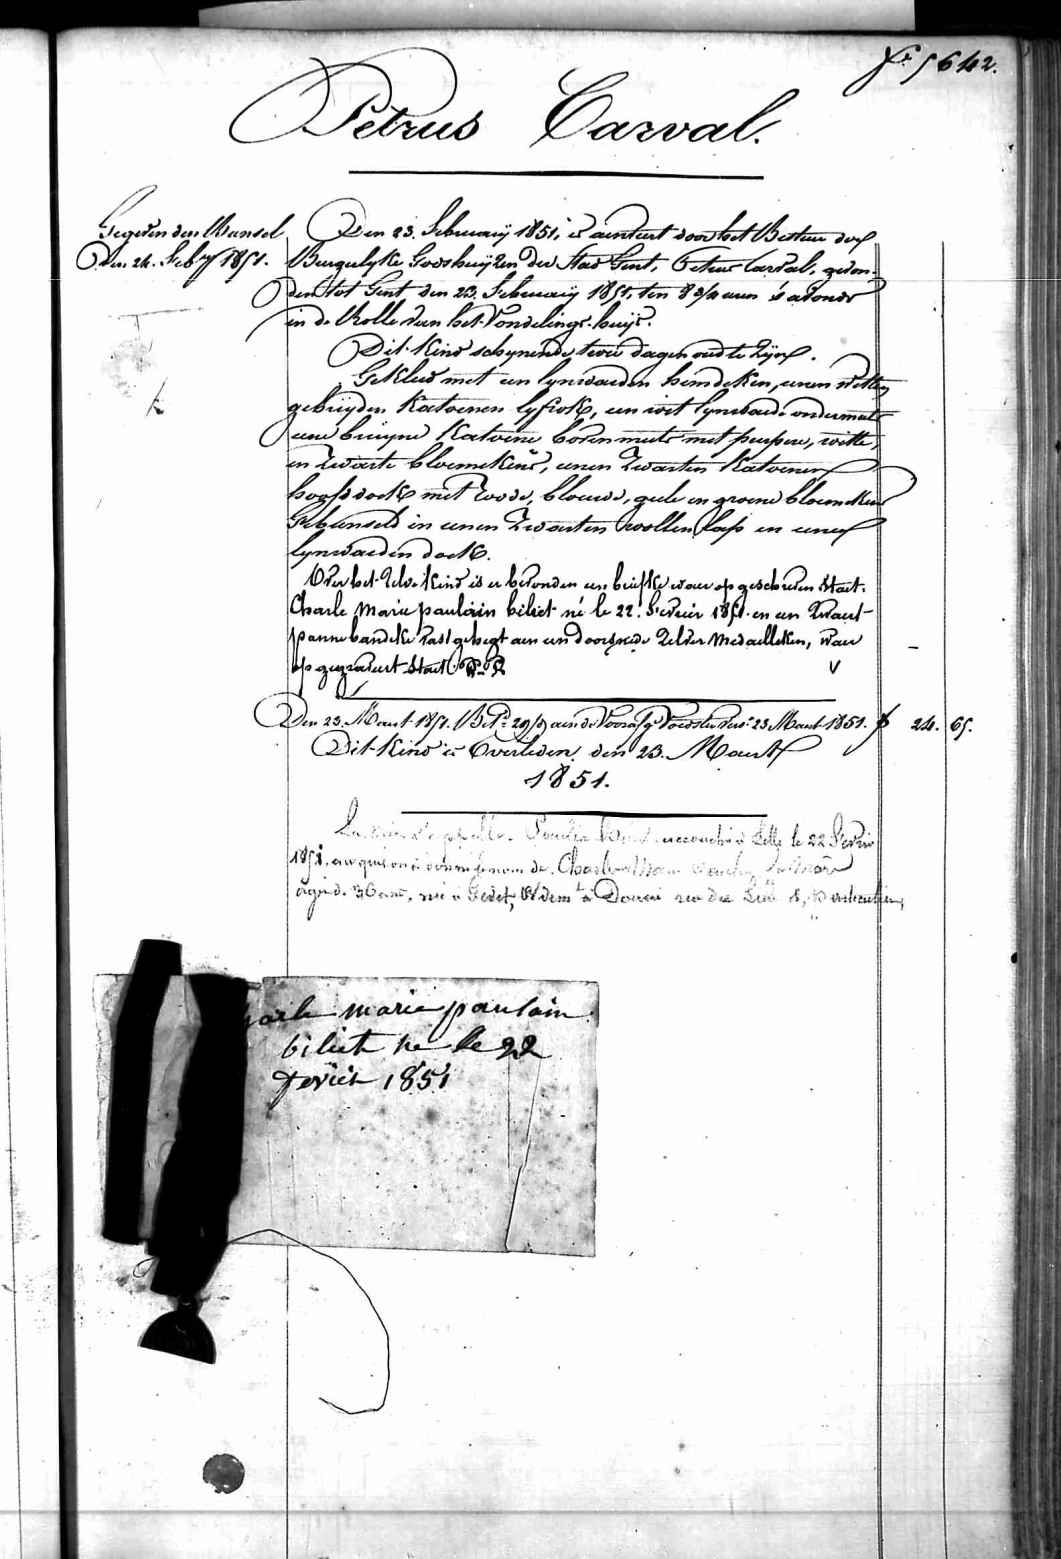 fo 5642.
Petrus Carval.
Gegeven den Mansel
Den 24. Feby 1851.
Den 23. February 1851, is aenveert door het Bestuer der
Burgelyke Godshuyzen der Stad Gent, Petrus Carval, gevon-
den tot Gent den 23. February 1851, ten 8 3/4 uren 's avonds
in de Rolle van het Vondelings-huys.
Dit kind schynende twee dagen oud te zyn.
Gekleed met een lynwaeden hemdeken, eenen witten
gebryden katoenen lyfrok, een wit lynwaede ondermuts
eene bruyne katoene bovenmuts met purpere, witte,
en zwarte bloemekens, eenen zwarten katoenen
hoofddoek met roode, blouwe, geele en groene bloemekens
Gebunseld in eenen zwarten wollen lap en eenen
lynwaeden doek.
Over het zelve kind is er bevonden een briefke waer op geschreven staet.
Charle Marie paulain biliet né le 22. Fevrier 1851. en een zwart
panne bandeke vast gehegt aen een doorsnede zelver medailleken, waer
op gegraveert staet
Den 23. Maert 1851. Bet. aen de Voedster 23 Maert 1851. f 24. 65.
Dit kind is Overleden den 23. Maert
1851.
accouchée à Lille le 22 Fevrier
1851, au quel on a donné le nom de Charles Marie
agée de ans, né à à Douai rue
marie paulain
biliet ne le 22
fevier 1851